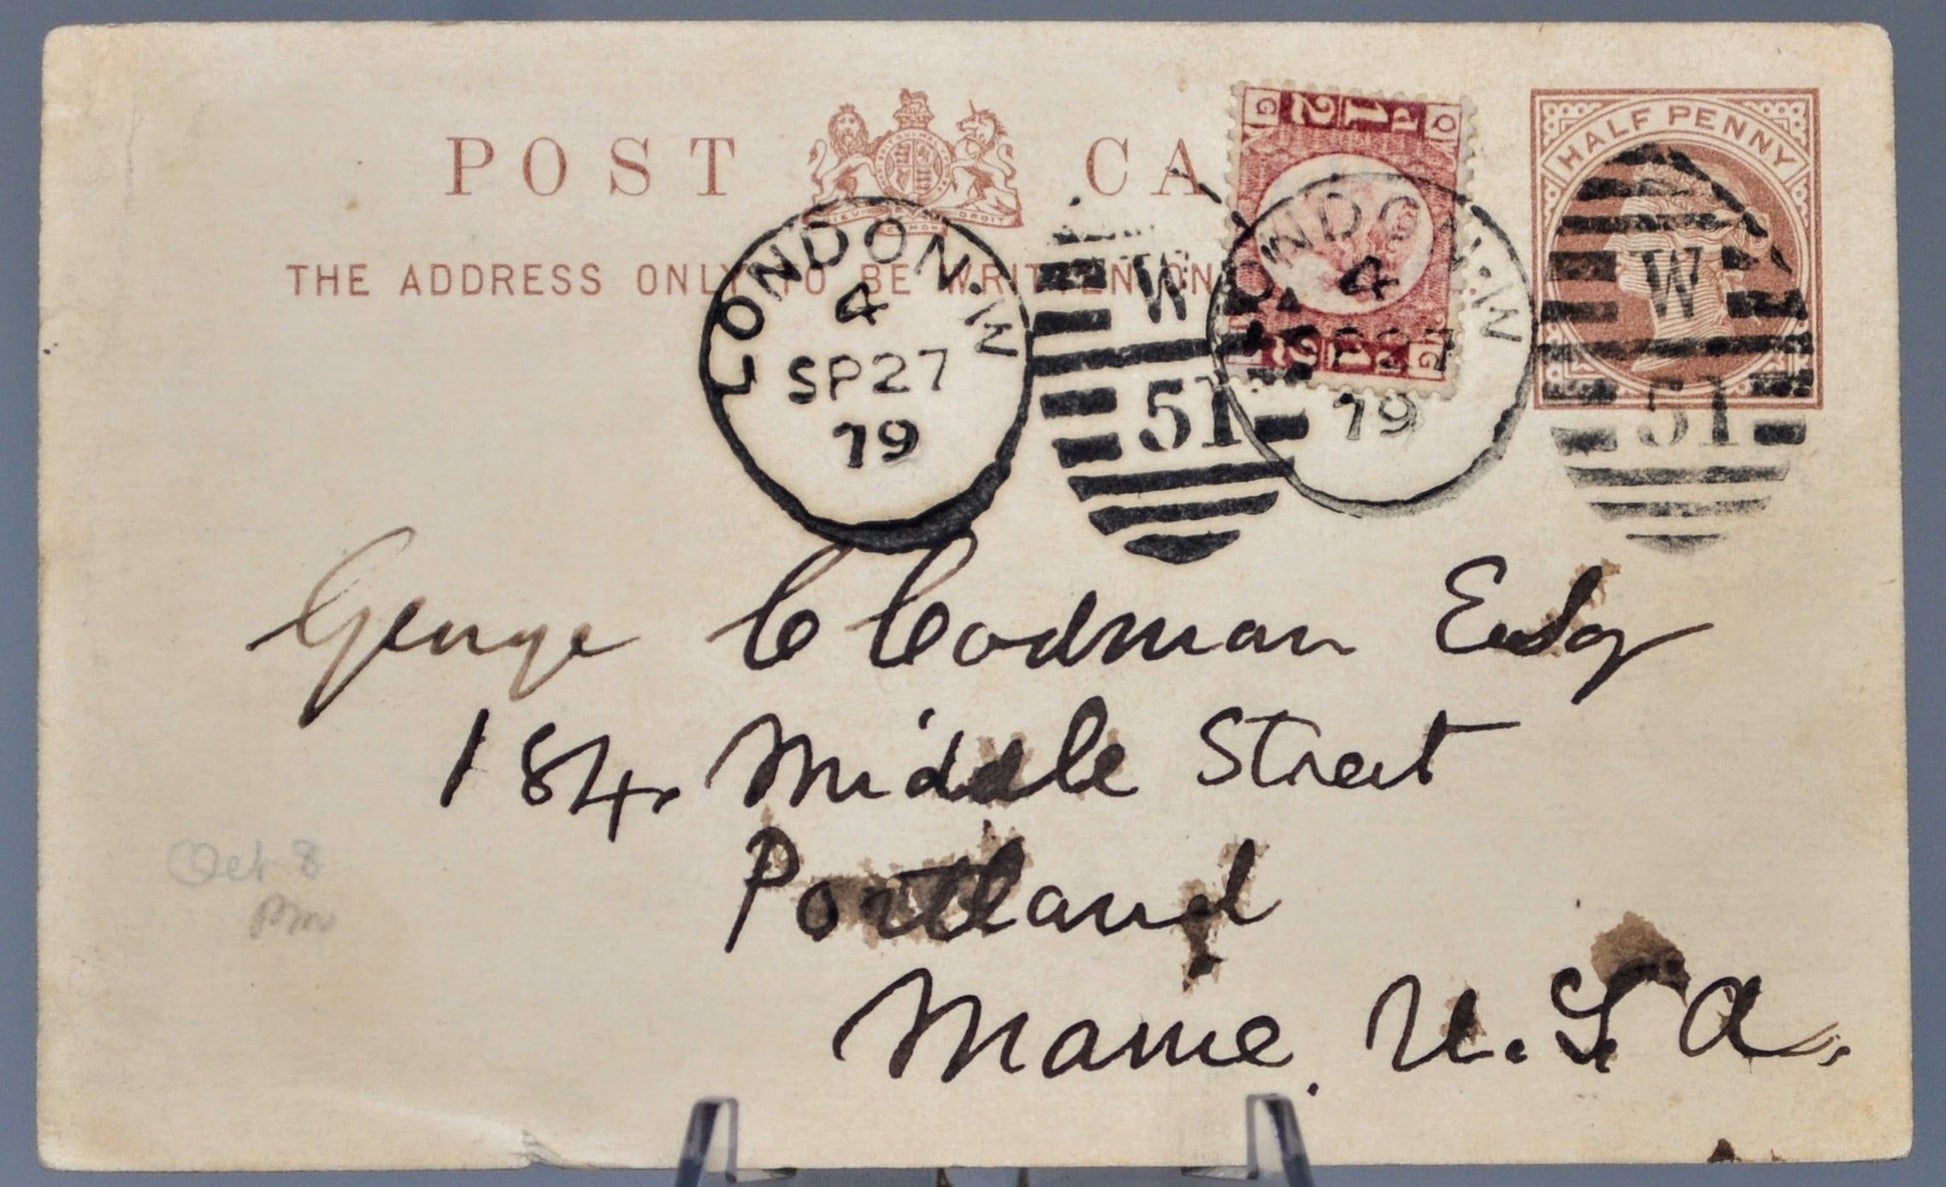 POST CA
HALF PENNY
THE ADDRESS ONLY TO BE WRITTEN ON
LONDON·W
4
SP27
79
W
51
LONDON·W
4
SP27
79
W
51
George C Codman Esq
184 Middle Street
Portland
Maine. U.S.A.
Oct 8
PM